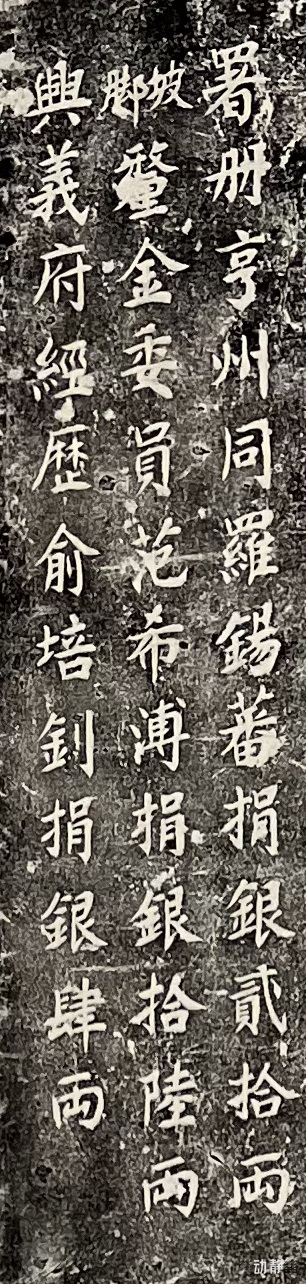 署册亨州同羅錫蕃捐銀貳拾兩
坡腳釐金委員范希溥捐銀拾陸兩
興義府經歷俞培釗捐銀肆兩
动静